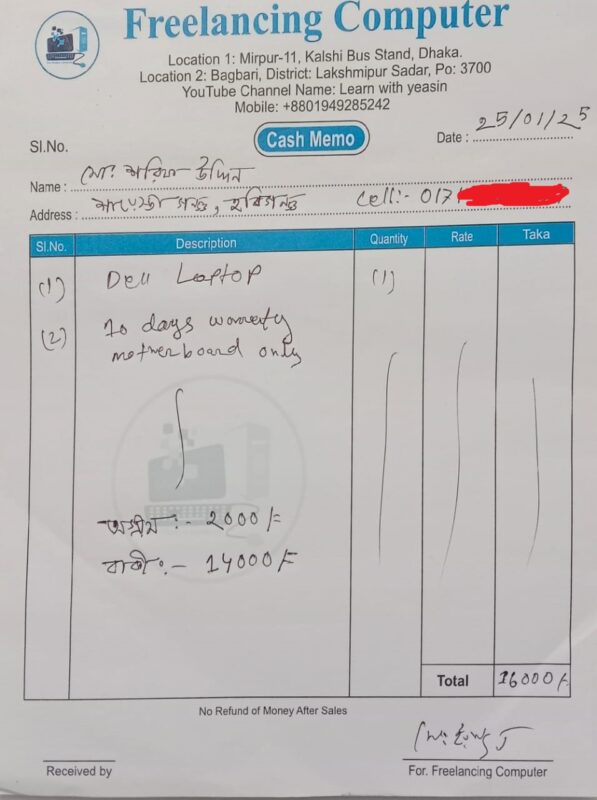 Freelancing Computer
Location 1: Mirpur-11, Kalshi Bus Stand, Dhaka.
Location 2: Bagbari, District: Lakshmipur Sadar, Po: 3700
YouTube Channel Name: Learn with yeasin
Mobile: +8801949285242
Sl.No.
Cash Memo
Date : 25/01/25
Name : মো: শরিফ উদ্দিন
Address : হবিগঞ্জ Cell:- 017
Sl.No. Description Quantity Rate Taka
(1) Dell Laptop (1)
(2) 10 days warrenty
motherboard only
অগ্রীম :- 2000/-
বাকী :- 14000/-
Total 16000/-
No Refund of Money After Sales
Received by
For. Freelancing Computer